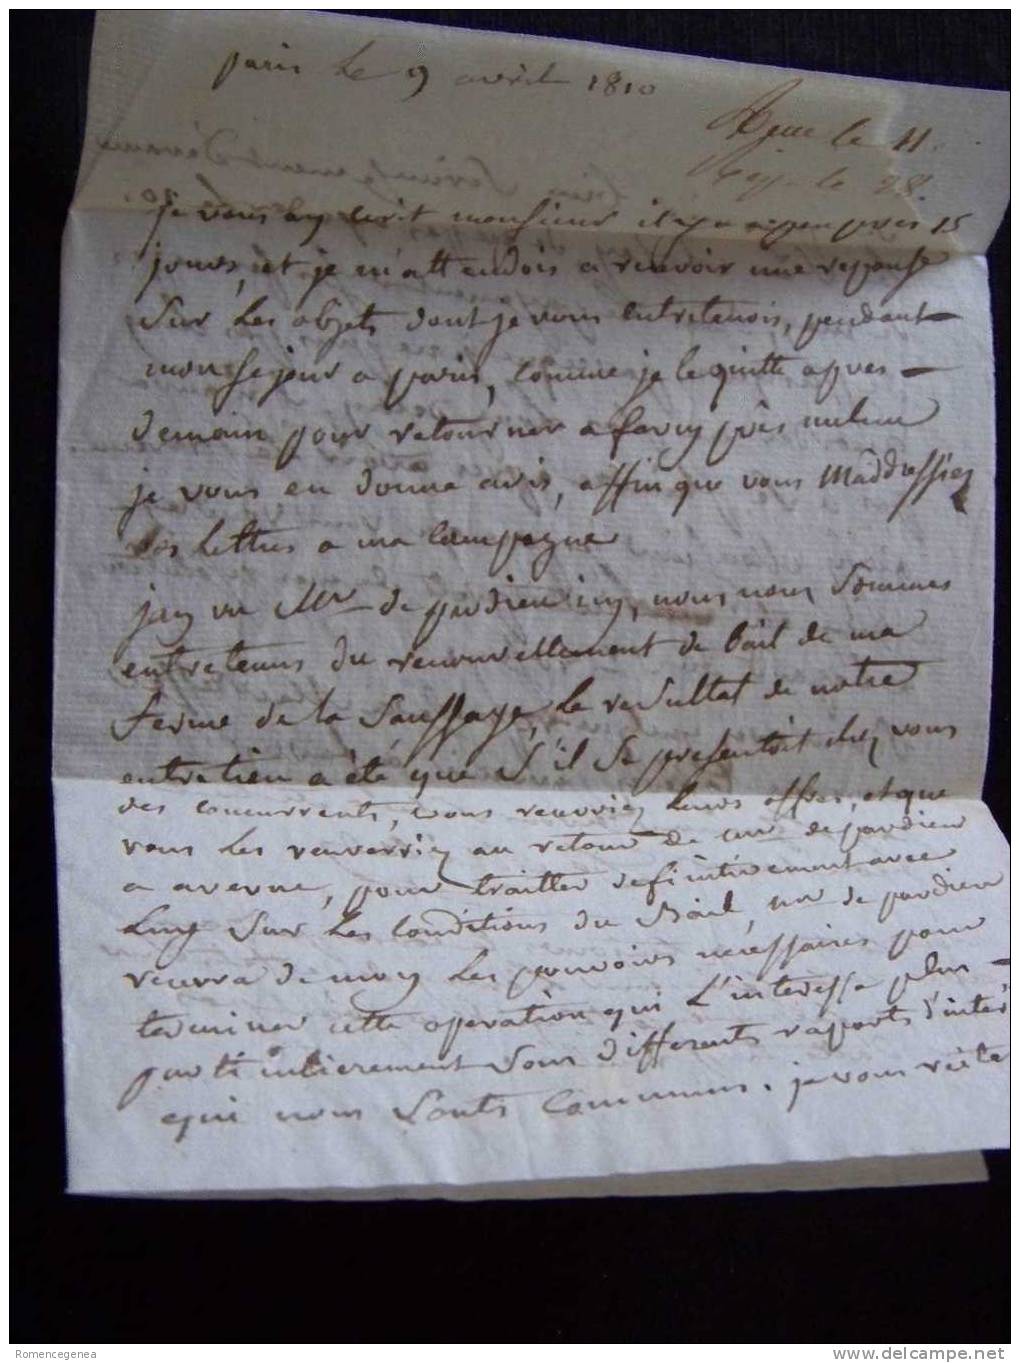 paris le 9 avril 1810
Reçu le 11.
Rep. le 28.
je vous ay ecrit monsieur il y a a peu prés 15
jours, et je m'attendois a recevoir une reponse
sur les objets dont je vous entretenois, pendant
mon sejour a paris, comme je le quitte apres
demain pour retourner a près melun
je vous en donne avis, affin que vous m'addressiez
vos lettres a ma campagne
jay vu Mr de pardieu icy, nous nous sommes
entretenus du renouvellement de bail de ma
ferme de la saussaye, le resultat de notre
entretien a été que s'il se presentoit chez vous
des concurrents, vous recevriez leurs offres, et que
vous les renverriez au retour de mr de pardieu
a averne, pour traitter definitivement avec
luy sur les conditions du Bail, mr de pardieu
recevra de moy les pouvoirs nécessaires pour
terminer cette operation qui l'interesse plus
particulierement sous differents raports d'interé
qui nous sonts communs. je vous réite
Romencegenea
www.delcampe.net